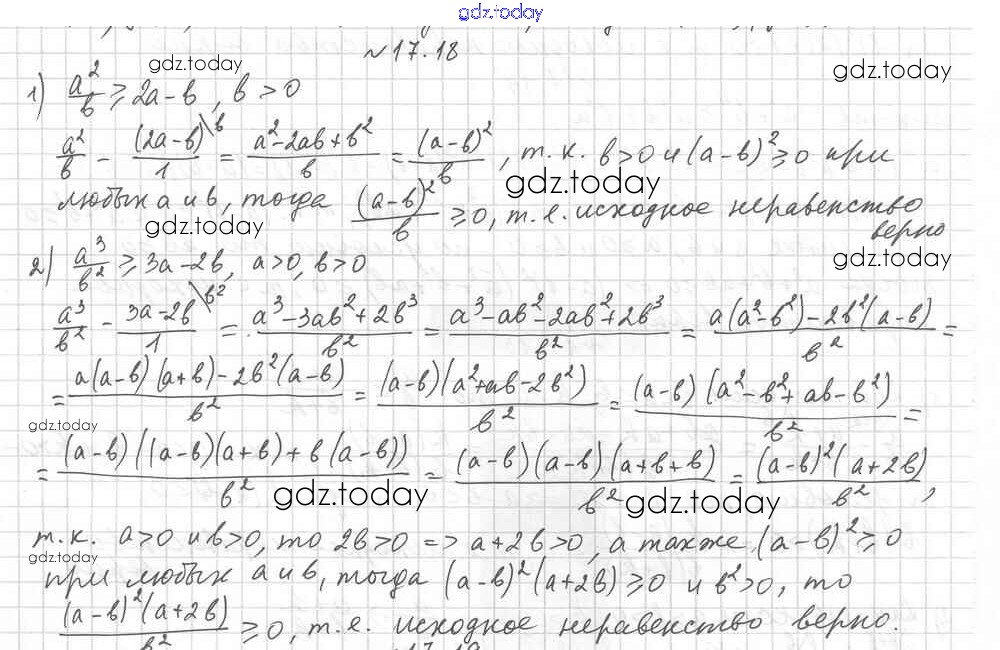 gdz.today
№17.18
gdz.today
gdz.today
1) a²/b ≥ 2a - b, b > 0
a²/b - (2a-b)\b/1 = (a² - 2ab + b²)/b = (a-b)²/b, т.к. b>0 и (a-b)² ≥ 0 при
gdz.today
любых a и b, тогда (a-b)²/b ≥ 0, т.е. исходное неравенство
верно
gdz.today
gdz.today
2) a³/b² ≥ 3a - 2b, a>0, b>0
a³/b² - 3a-2b\b²/1 = (a³ - 3ab² + 2b³)/b² = (a³ - ab² - 2ab² + 2b³)/b² = (a(a² - b²) - 2b²(a-b))/b² =
= (a(a-b)(a+b) - 2b²(a-b))/b² = (a-b)(a² + ab - 2b²)/b² = (a-b)(a² - b² + ab - b²)/b² =
gdz.today
= (a-b)((a-b)(a+b) + b(a-b))/b² = (a-b)(a-b)(a+b+b)/b² = (a-b)²(a+2b)/b²,
gdz.today
gdz.today
т.к. a>0 и b>0, то 2b>0 => a+2b>0, а также (a-b)² ≥ 0
gdz.today
при любых a и b, тогда (a-b)²(a+2b) ≥ 0 и b²>0, то
(a-b)²(a+2b)/b² ≥ 0, т.е. исходное неравенство верно.